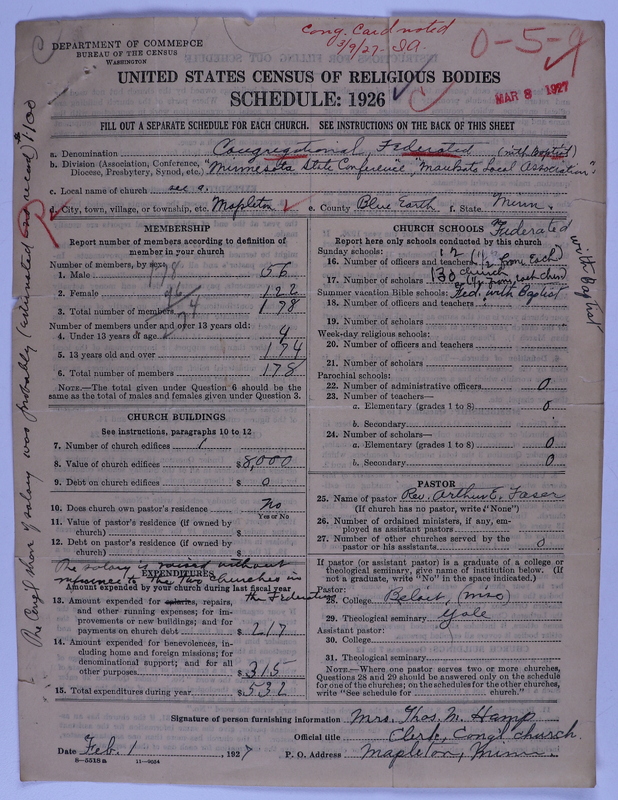 Cong. Card noted
3/9/27 - IA.
0-5-9
DEPARTMENT OF COMMERCE
BUREAU OF THE CENSUS
WASHINGTON
UNITED STATES CENSUS OF RELIGIOUS BODIES
SCHEDULE: 1926
MAR 8 1927
FILL OUT A SEPARATE SCHEDULE FOR EACH CHURCH. SEE INSTRUCTIONS ON THE BACK OF THIS SHEET
a. Denomination Congregational Federated (with Baptist)
b. Division (Association, Conference, Diocese, Presbytery, Synod, etc.) "Minnesota State Conference", Mankato Local Association".
c. Local name of church see a.
d. City, town, village, or township, etc. Mapleton e. County Blue Earth f. State Minn.
MEMBERSHIP
Report number of members according to definition of member in your church
Number of members, by sex:
1. Male 56
2. Female 122
3. Total number of members 178
Number of members under and over 13 years old:
4. Under 13 years of age 4
5. 13 years old and over 174
6. Total number of members 178
NOTE.—The total given under Question 6 should be the same as the total of males and females given under Question 3.
CHURCH BUILDINGS
See instructions, paragraphs 10 to 12
7. Number of church edifices 1
8. Value of church edifices $8,000
9. Debt on church edifices $ 0
10. Does church own pastor's residence No
Yes or No
11. Value of pastor's residence (if owned by church) $
12. Debt on pastor's residence (if owned by church) $
The salary is raised without
reference to the two churches in
the Federation
EXPENDITURES
Amount expended by your church during last fiscal year
13. Amount expended for salaries, repairs, and other running expenses; for improvements or new buildings; and for payments on church debt $217
14. Amount expended for benevolences, including home and foreign missions; for denominational support; and for all other purposes $315
15. Total expenditures during year $532
CHURCH SCHOOLS Federated
with Baptist
Report here only schools conducted by this church
Sunday schools:
16. Number of officers and teachers 12 from Each church
17. Number of scholars 130 (½ from each church)
Summer vacation Bible schools: Fed. with Baptist
18. Number of officers and teachers
19. Number of scholars
Week-day religious schools:
20. Number of officers and teachers
21. Number of scholars
Parochial schools:
22. Number of administrative officers 0
23. Number of teachers—
a. Elementary (grades 1 to 8) 0
b. Secondary
24. Number of scholars—
a. Elementary (grades 1 to 8) 0
b. Secondary 0
PASTOR
25. Name of pastor Rev. Arthur E. Faser
(If church has no pastor, write "None")
26. Number of ordained ministers, if any, employed as assistant pastors
27. Number of other churches served by the pastor or his assistants 0
If pastor (or assistant pastor) is a graduate of a college or theological seminary, give name of institution below. (If not a graduate, write "No" in the space indicated.)
Pastor:
28. College Beloit, (Wisc)
29. Theological seminary Yale
Assistant pastor:
30. College
31. Theological seminary
NOTE.—Where one pastor serves two or more churches, Questions 28 and 29 should be answered only on the schedule for one of the churches; on the schedules for the other churches, write "See schedule for church."
Signature of person furnishing information Mrs. Thos. M. Hamp
Official title Clerk, Cong'l church.
Date Feb. 1, 1927 P. O. Address Mapleton, Minn.
8-5518a 11-9054
The Cong'l share of salary was probably (estimated no record) $1100